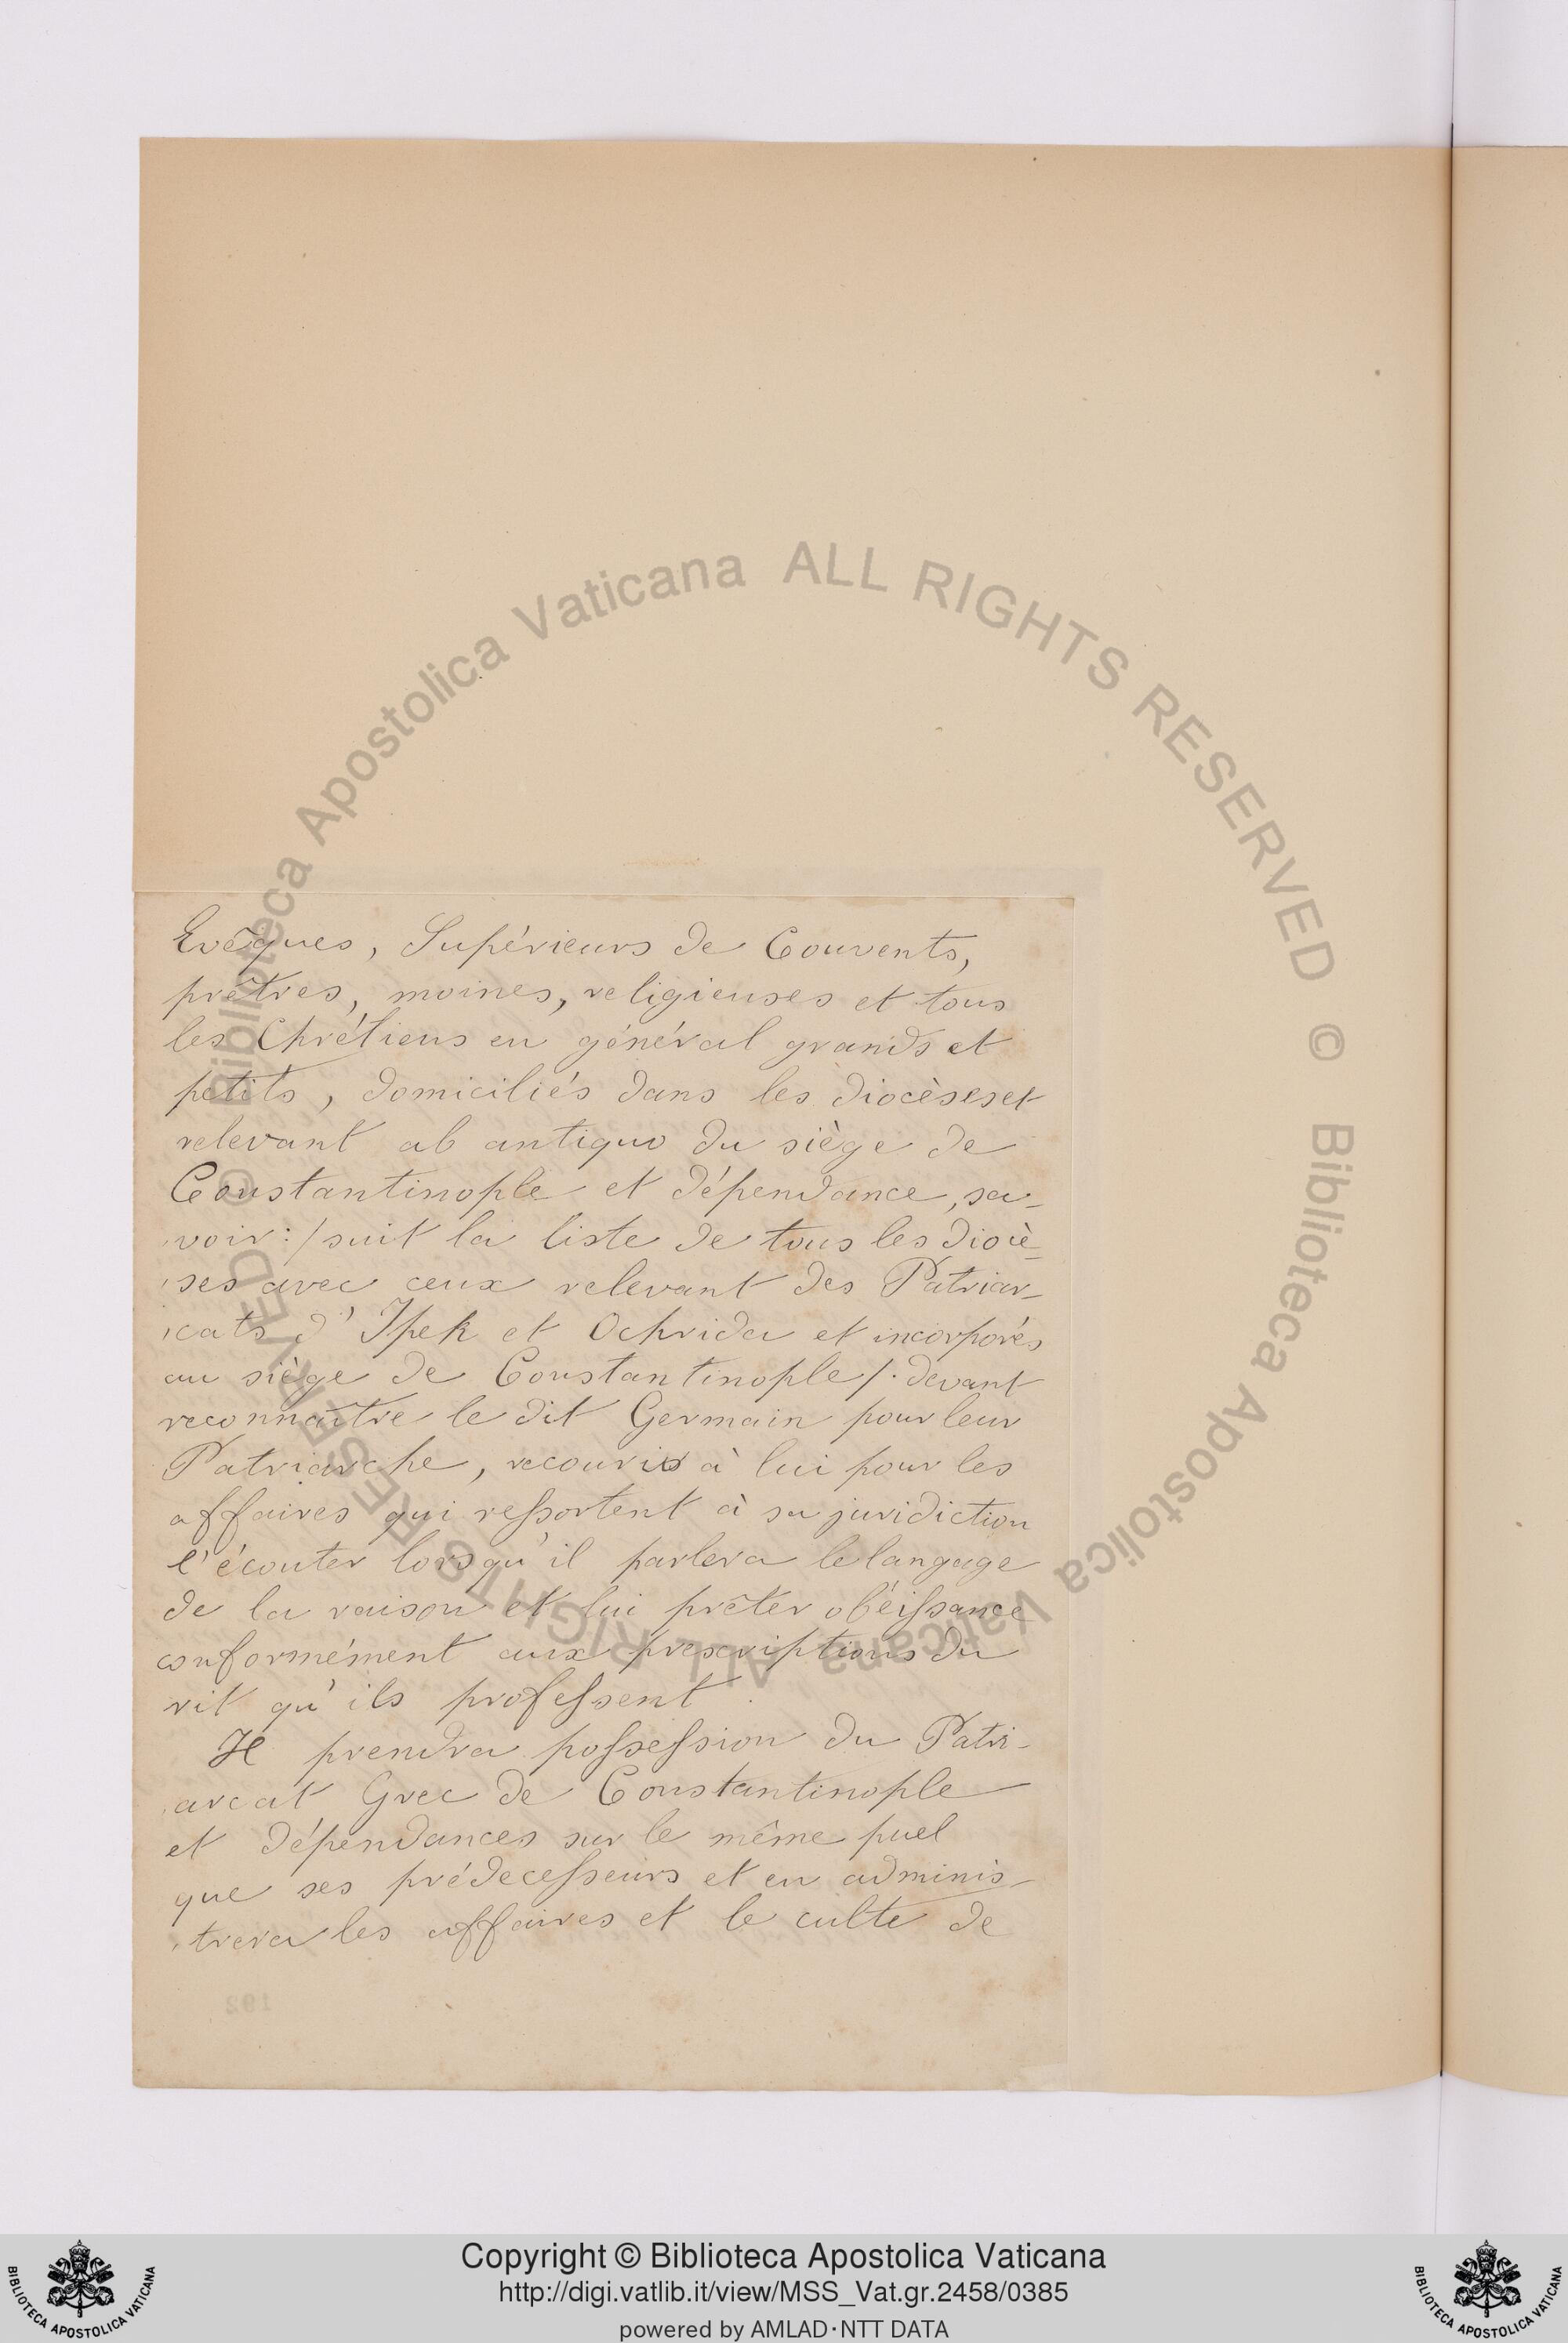 Evêques, Supérieurs de Couvents,
prêtres, moines, religieuses et tous
les Chrétiens en général grands et
petits, domiciliés dans les diocèses et
relevant ab antiquo du siège de
Constantinople et dépendance, sa-
voir: /suit la liste de tous les diocè-
ses avec ceux relevant des Patriar-
cats d'Ipek et Ochrida et incorporés
au siège de Constantinople/. devant
reconnaître le dit Germain pour leur
Patriarche, recourir à lui pour les
affaires qui ressortent à sa juridiction
l'écouter lorsqu'il parlera le langage
de la raison et lui prêter obéissance
conformément aux prescriptions du
rit qu'ils professent.
Il prendra possession du Patri-
arcat Grec de Constantinople
et dépendances sur le même puel
que ses prédecesseurs et en adminis-
trera les affaires et le culte de
192
© Biblioteca Apostolica Vaticana ALL RIGHTS RESERVED
© Biblioteca Apostolica Vaticana ALL RIGHTS RESERVED
Copyright © Biblioteca Apostolica Vaticana
http://digi.vatlib.it/view/MSS_Vat.gr.2458/0385
powered by AMLAD·NTT DATA
BIBLIOTECA APOSTOLICA VATICANA
BIBLIOTECA APOSTOLICA VATICANA